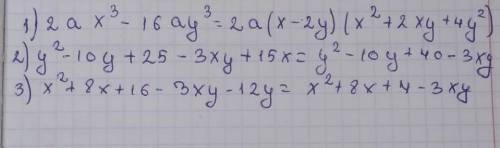 1) 2ax³ - 16ay³ = 2a(x-2y)(x²+2xy+4y²)
2) y²-10y+25-3xy+15x = y²-10y+40-3xy
3) x²+8x+16-3xy-12y = x²+8x+4-3xy